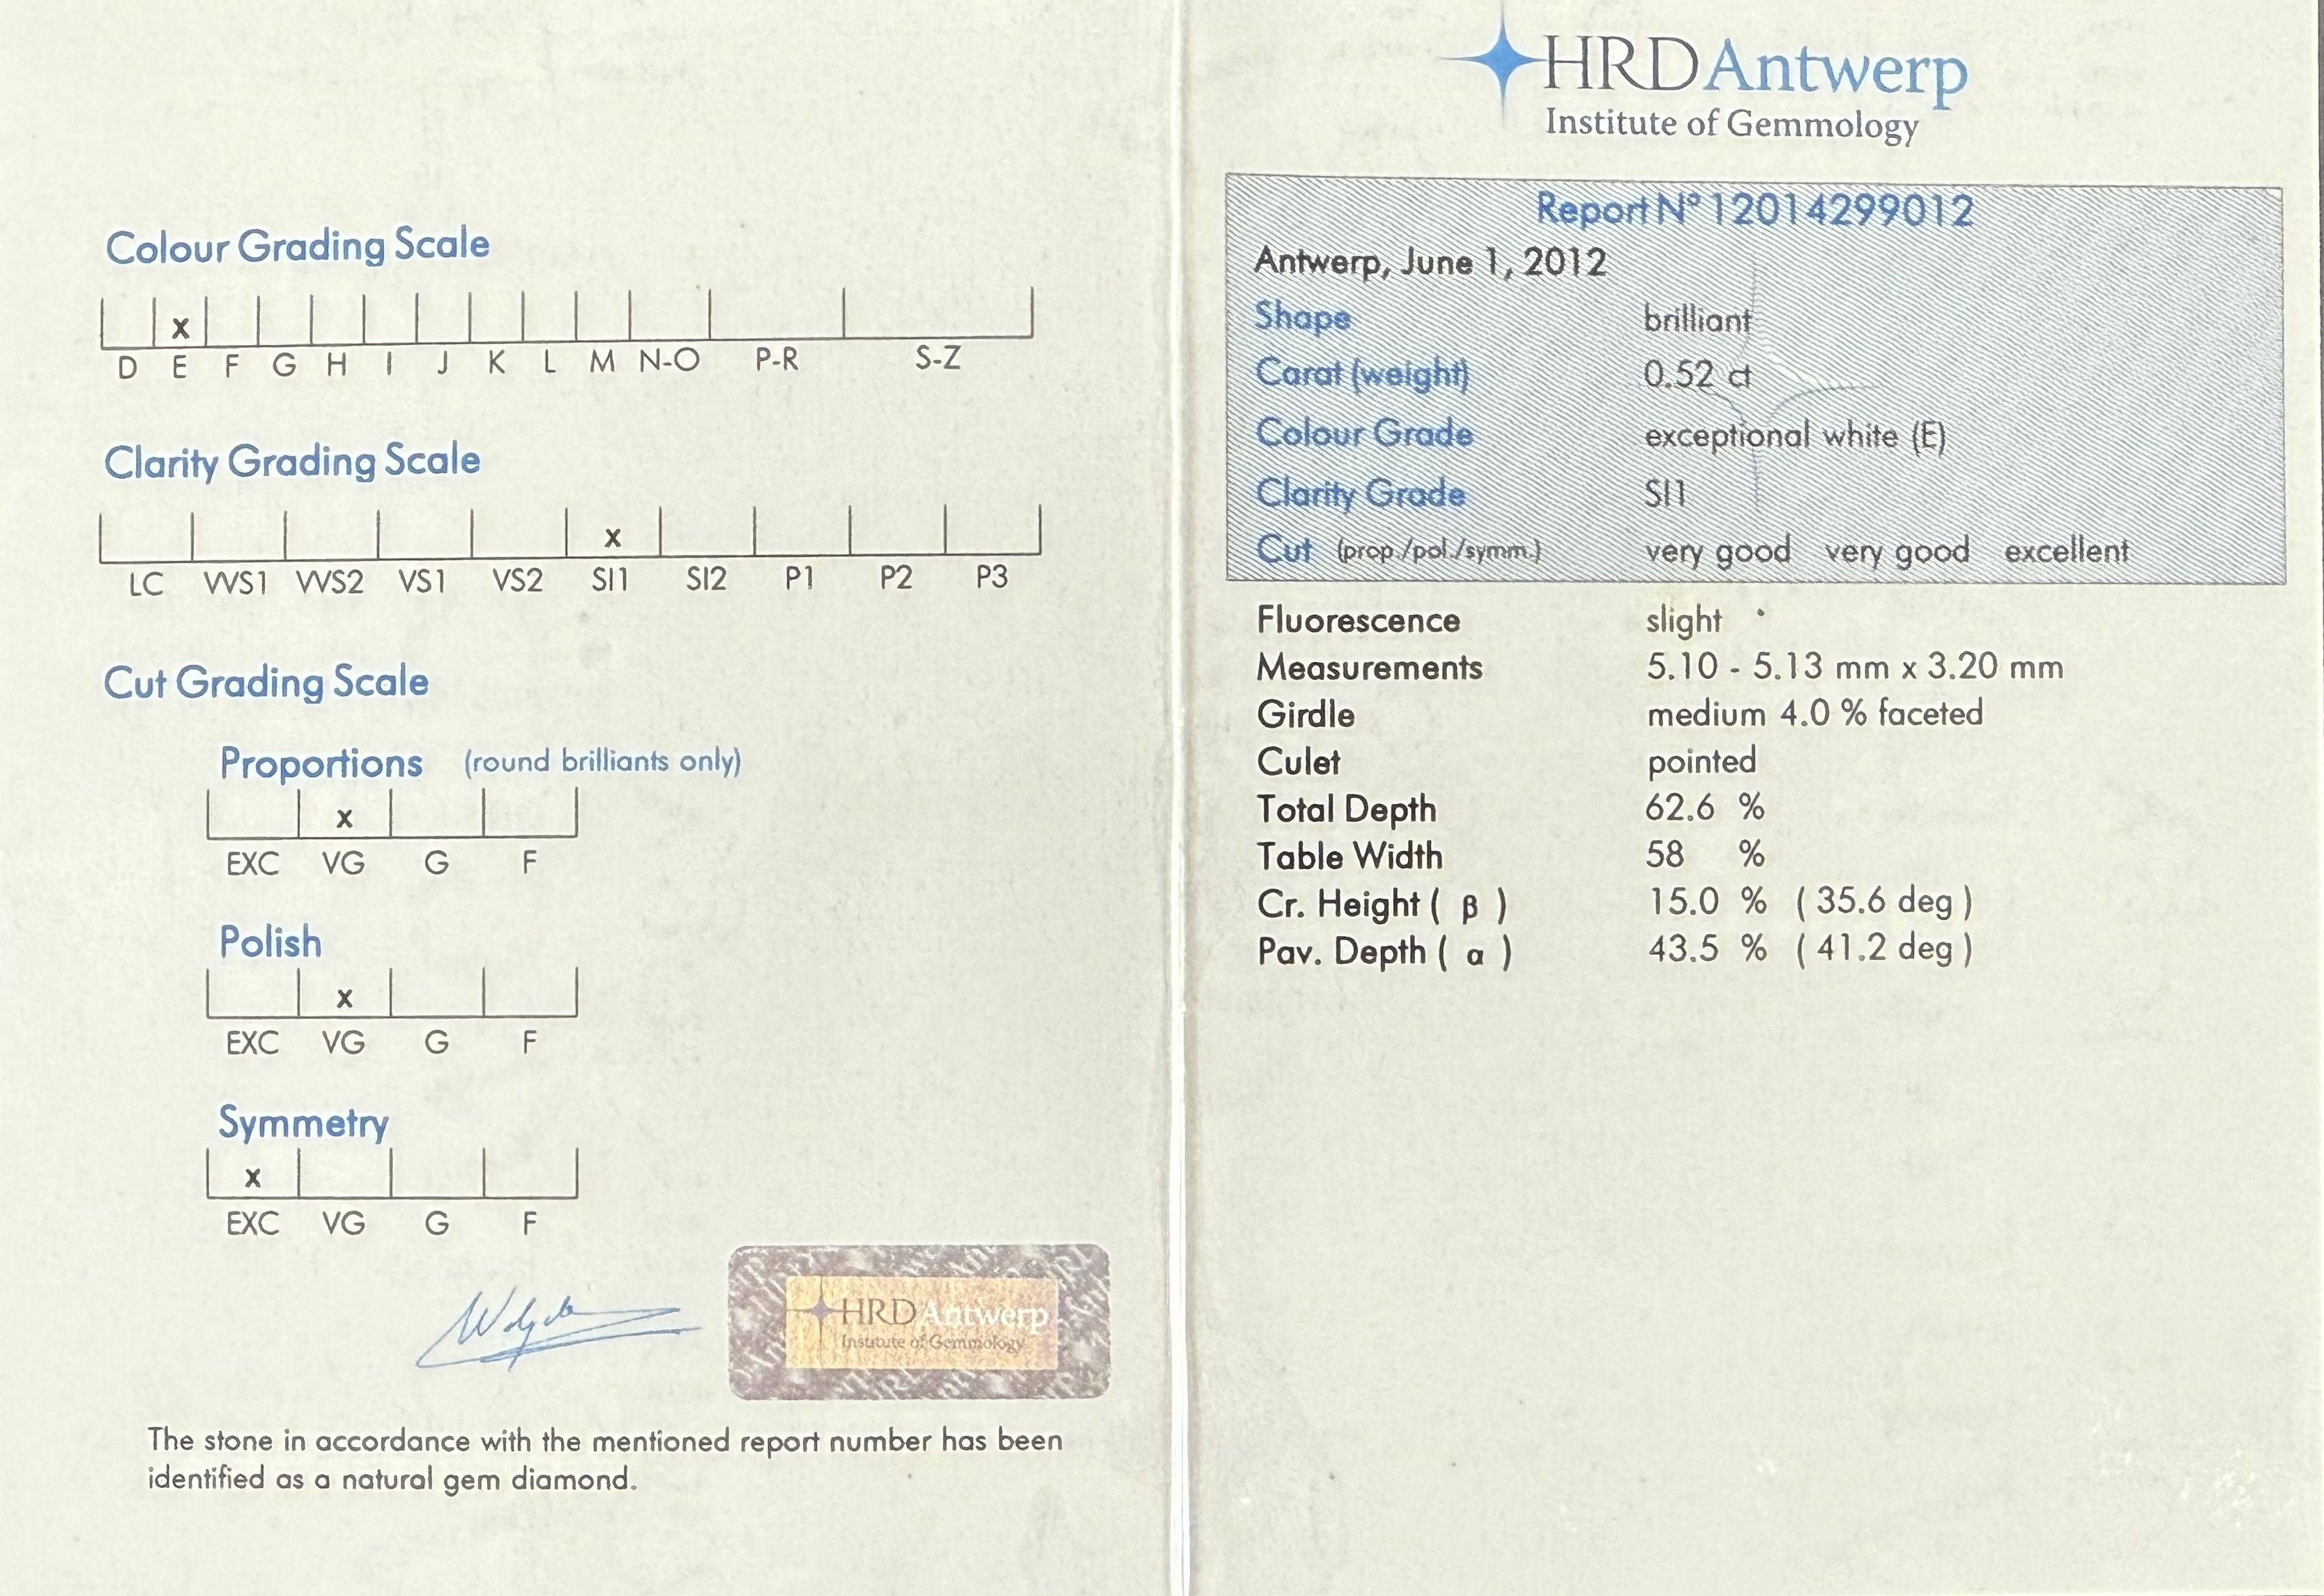 Colour Grading Scale
x
D E F G H I J K L M N-O P-R S-Z
Clarity Grading Scale
x
LC VVS1 VVS2 VS1 VS2 SI1 SI2 P1 P2 P3
Cut Grading Scale
Proportions (round brilliants only)
x
EXC VG G F
Polish
x
EXC VG G F
Symmetry
x
EXC VG G F
HRD Antwerp
Institute of Gemmology
The stone in accordance with the mentioned report number has been
identified as a natural gem diamond.
HRD Antwerp
Institute of Gemmology
Report N° 12014299012
Antwerp, June 1, 2012
Shape brilliant
Carat (weight) 0.52 ct
Colour Grade exceptional white (E)
Clarity Grade SI1
Cut (prop./pol./symm.) very good very good excellent
Fluorescence slight
Measurements 5.10 - 5.13 mm x 3.20 mm
Girdle medium 4.0 % faceted
Culet pointed
Total Depth 62.6 %
Table Width 58 %
Cr. Height ( β ) 15.0 % ( 35.6 deg )
Pav. Depth ( α ) 43.5 % ( 41.2 deg )